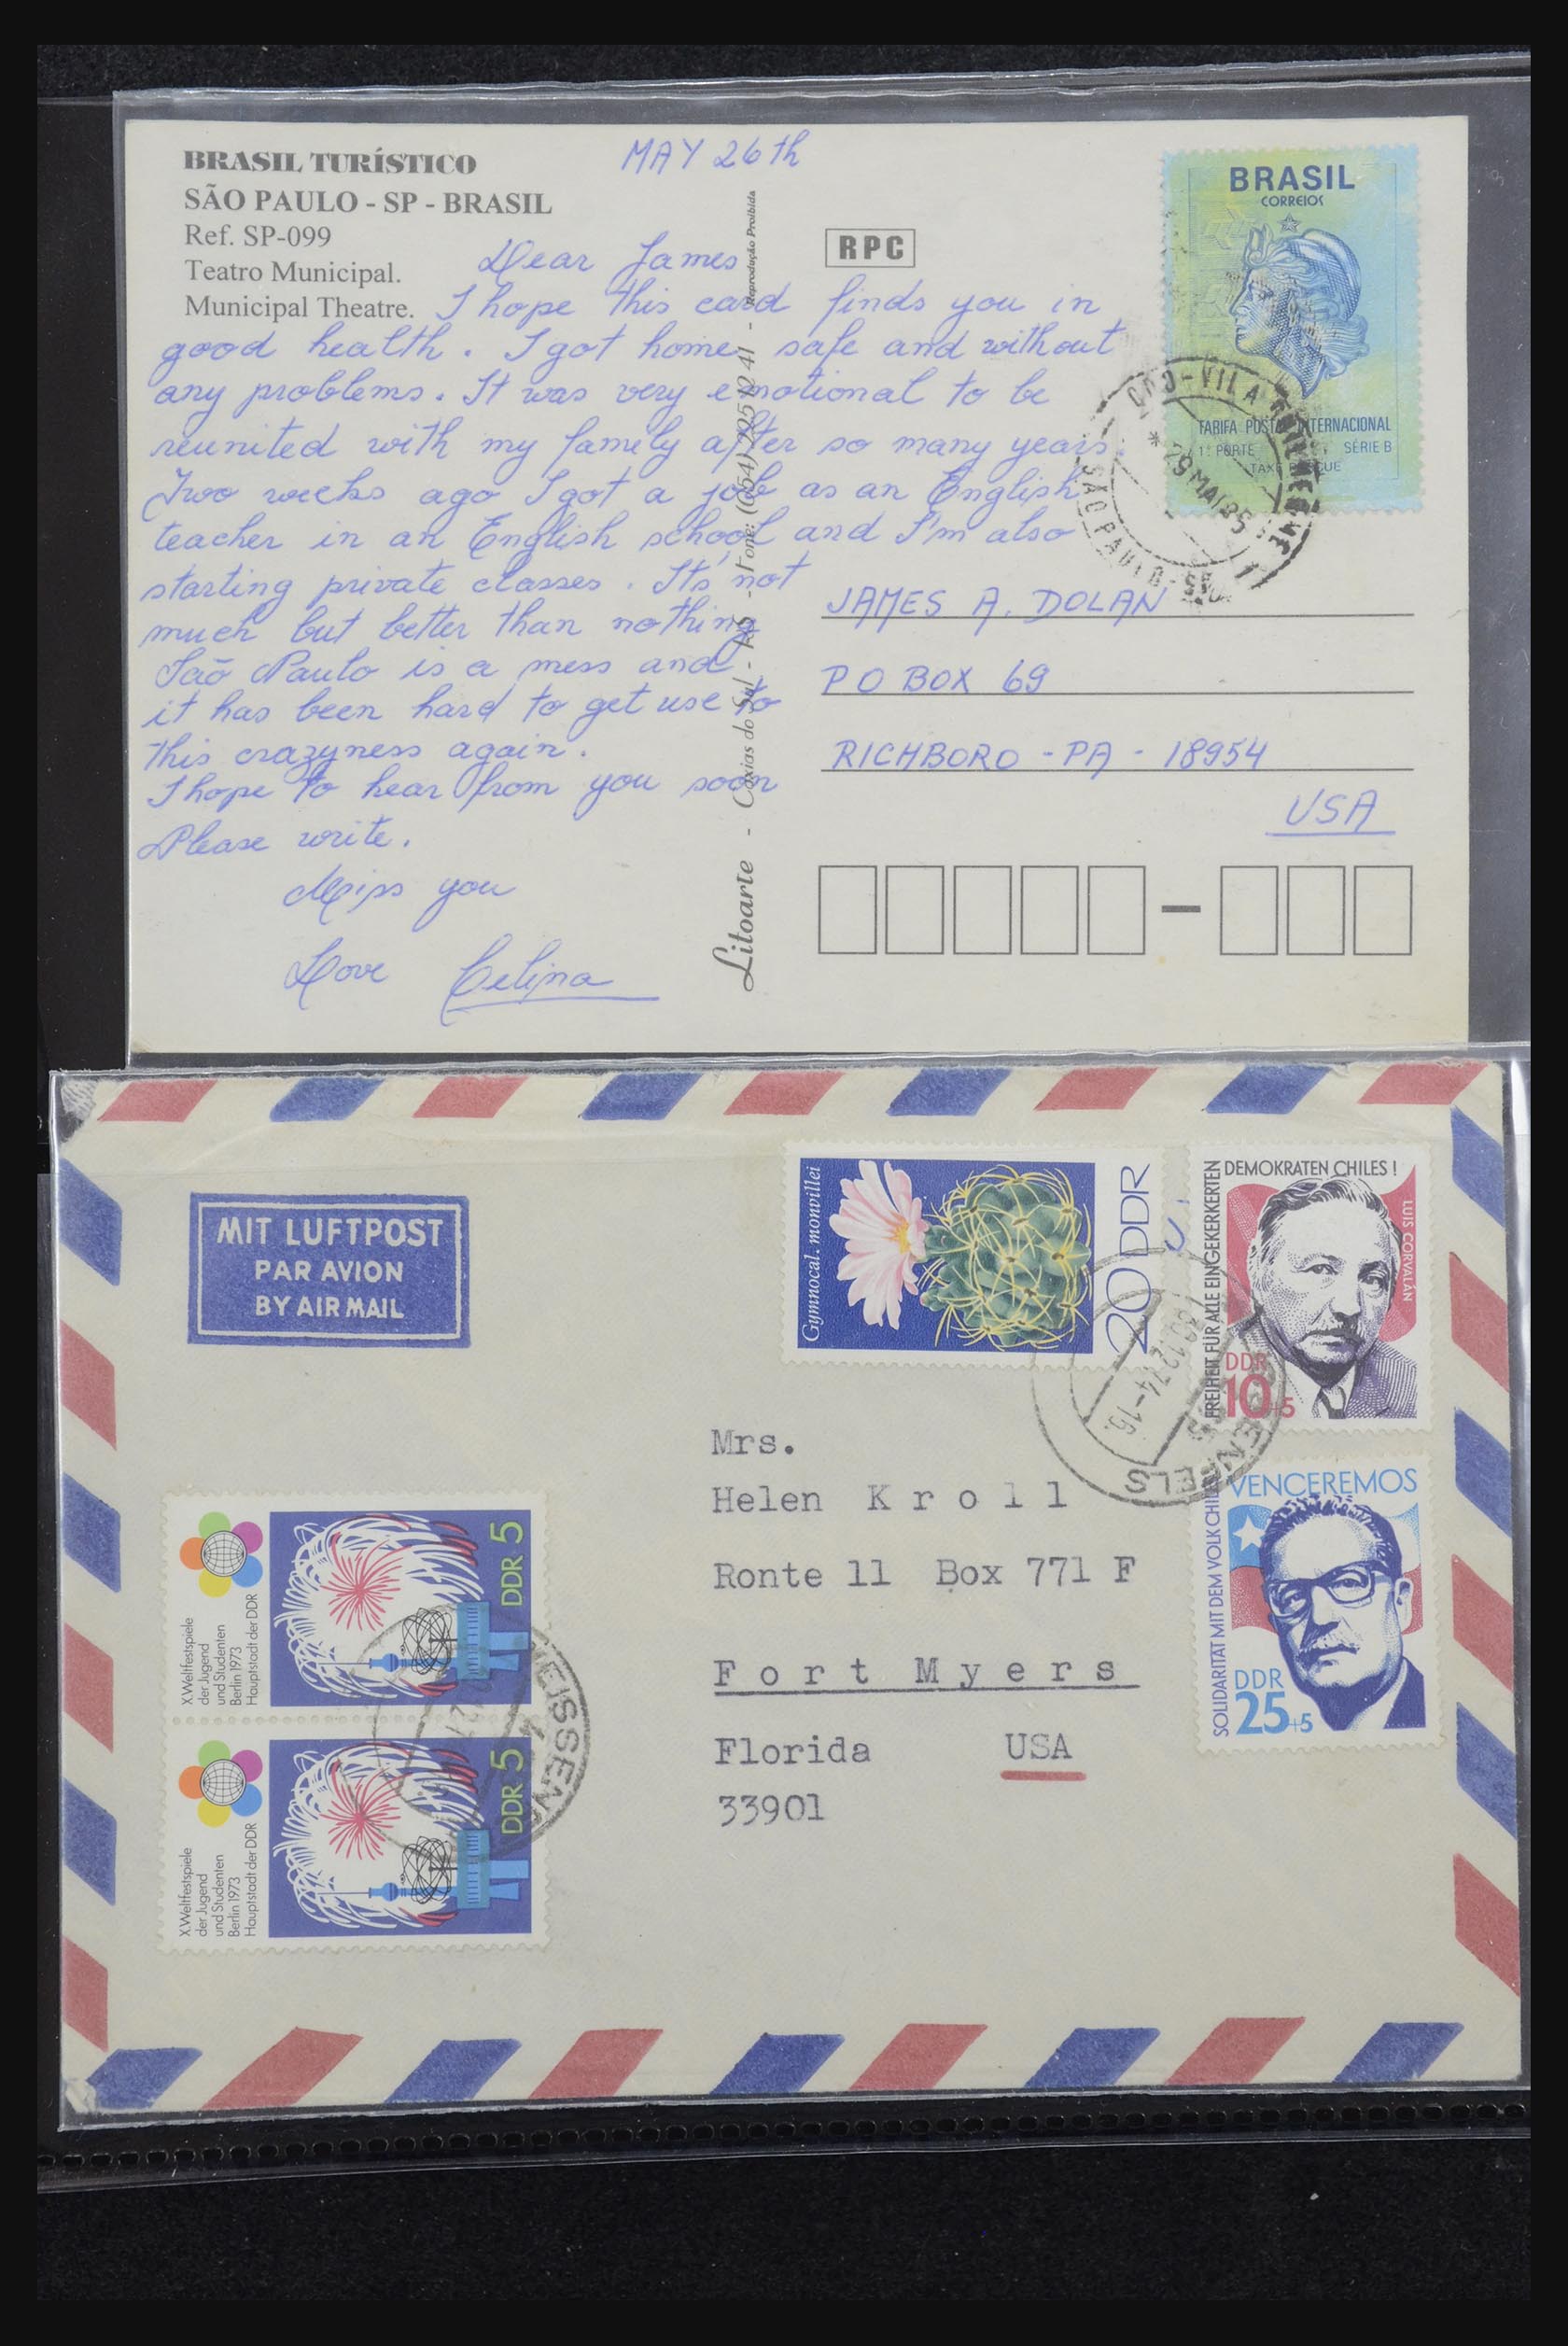 BRASIL TURÍSTICO
SÃO PAULO - SP - BRASIL
Ref. SP-099
Teatro Municipal.
Municipal Theatre.
MAY 26th
Dear James
I hope this card finds you in
good health. I got home safe and without
any problems. It was very emotional to be
reunited with my family after so many years.
Two weeks ago I got a job as an English
teacher in an English school and I'm also
starting private classes. It's not
much but better than nothing
São Paulo is a mess and
it has been hard to get use to
this crazyness again.
I hope to hear from you soon
Please write.
Miss you
Love Celina
Litoarte - Caxias do Sul - RS - Fone: (054) - Reprodução Proibida
RPC
BRASIL
CORREIOS
TARIFA POSTAL INTERNACIONAL
1º PORTE SÉRIE B
TAXE PERÇUE
29 MAI 95
SÃO PAULO - SP
JAMES A. DOLAN
P O BOX 69
RICHBORO - PA - 18954
USA
MIT LUFTPOST
PAR AVION
BY AIR MAIL
Gymnocal. monvillei
20 DDR
FREIHEIT FÜR ALLE EINGEKERKERTEN
DEMOKRATEN CHILES !
LUIS CORVALÁN
DDR
10+5
30.12.74-16
WEISSENFELS
SOLIDARITÄT MIT DEM VOLK CHILES
VENCEREMOS
DDR
25+5
Mrs.
Helen Kroll
Ronte 11 Box 771 F
Fort Myers
Florida USA
33901
X. Weltfestspiele
der Jugend
und Studenten
Berlin 1973
Hauptstadt der DDR
DDR 5
X. Weltfestspiele
der Jugend
und Studenten
Berlin 1973
Hauptstadt der DDR
DDR 5
WEISSENF